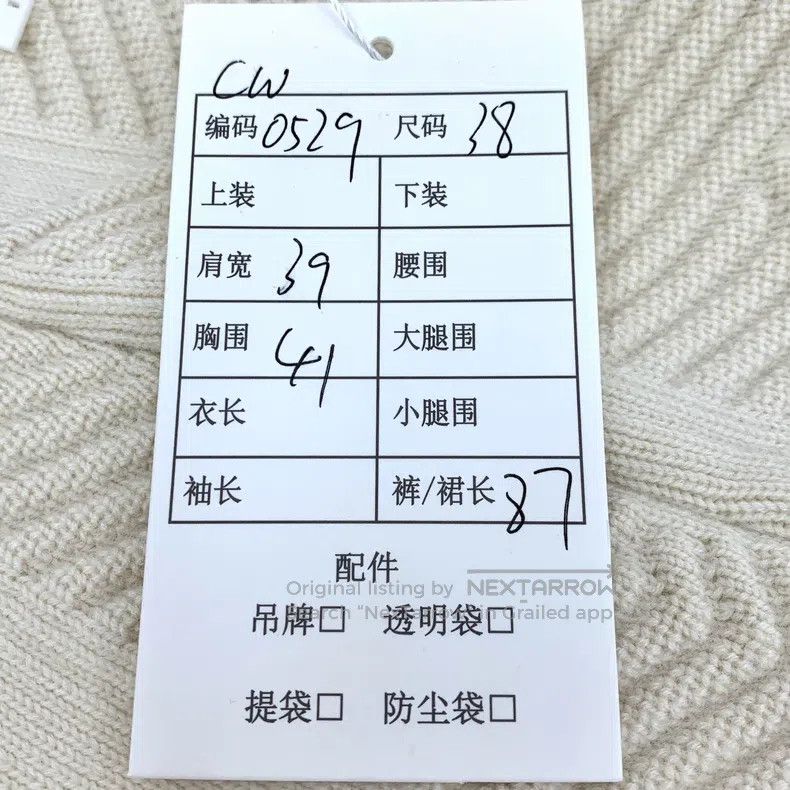 CW
编码 0529 尺码 38
上装 下装
肩宽 39 腰围
胸围 41 大腿围
衣长 小腿围
袖长 裤/裙长 87
配件
Original listing by NEXTARROW
吊牌□ 透明袋□
提袋□ 防尘袋□